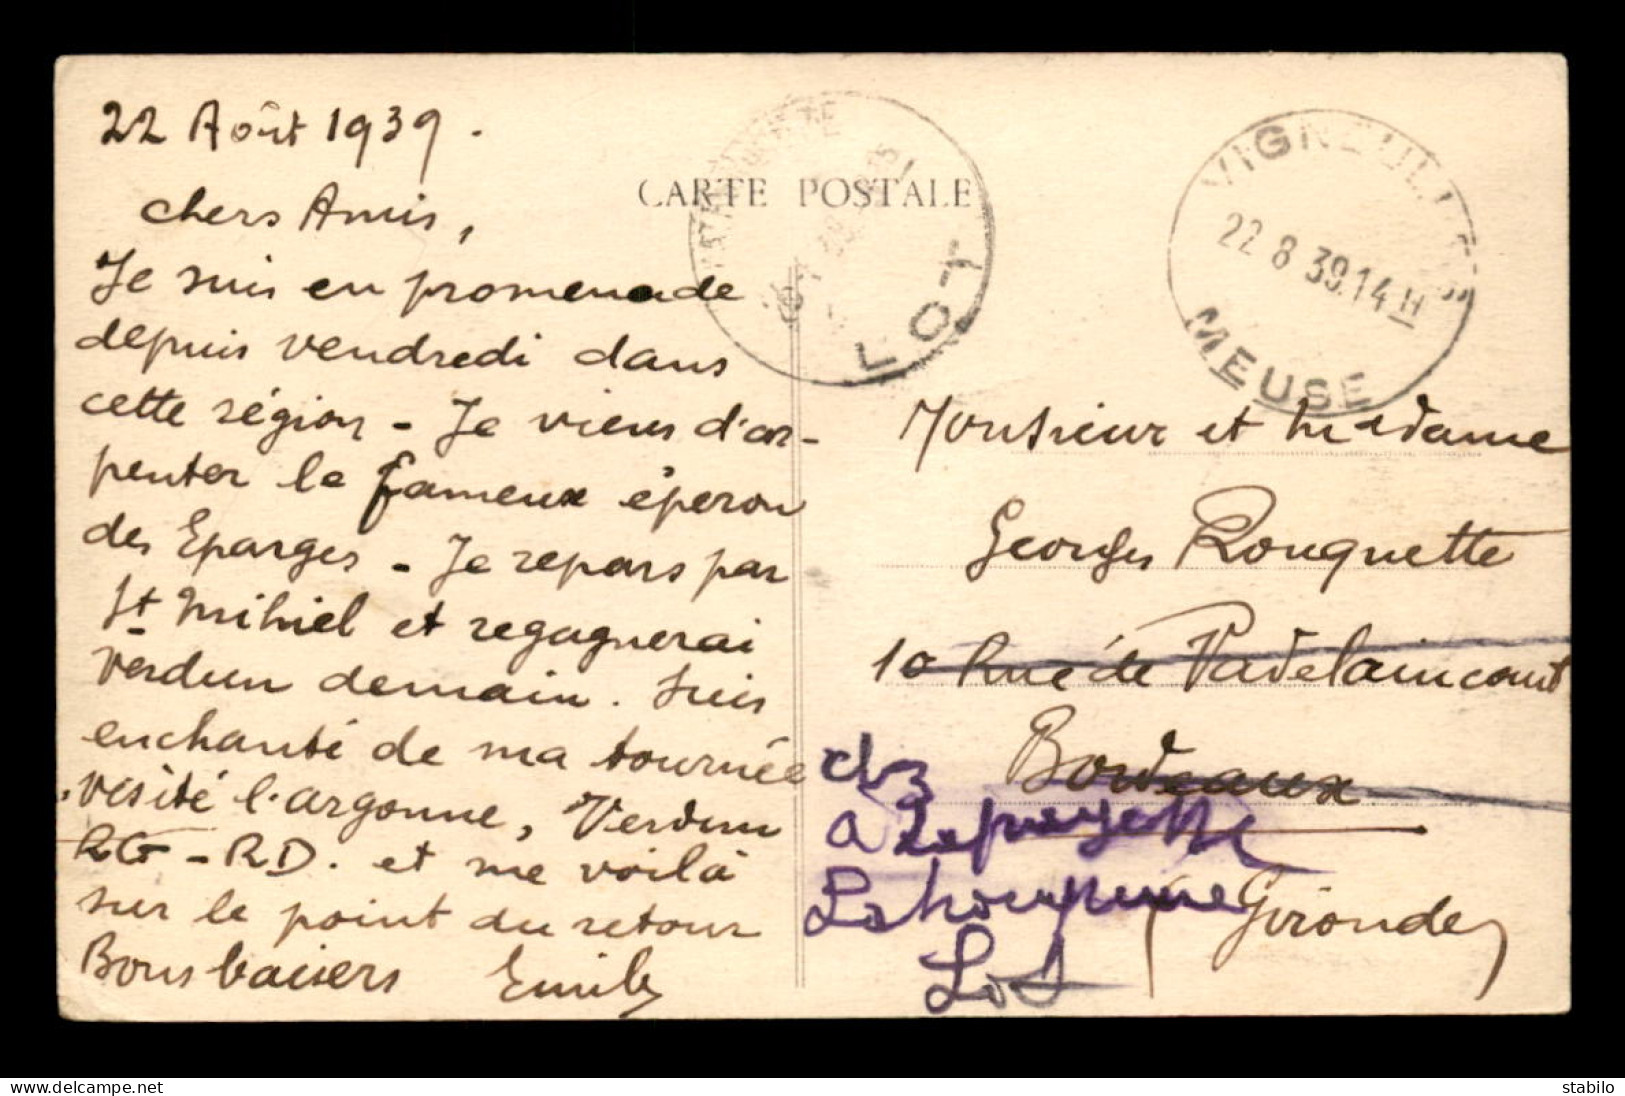 22 Août 1939.
chers Amis,
Je suis en promenade
depuis vendredi dans
cette région - Je viens d'ar-
penter le fameux éperon
des Eparges - Je repars par
St Mihiel et regagnerai
Verdun demain. Suis
enchanté de ma tournée
visité l'argonne, Verdun
RG - RD. et me voilà
sur le point du retour
Bons baisers Emile
CARTE POSTALE
LOT
VIGNEULLES
22 8 39.14 H
MEUSE
Monsieur et Madame
Georges Rouquette
10 Rue de Vadelaincourt
Bordeaux
Gironde
chez
a
Lot
www.delcampe.net
stabilo